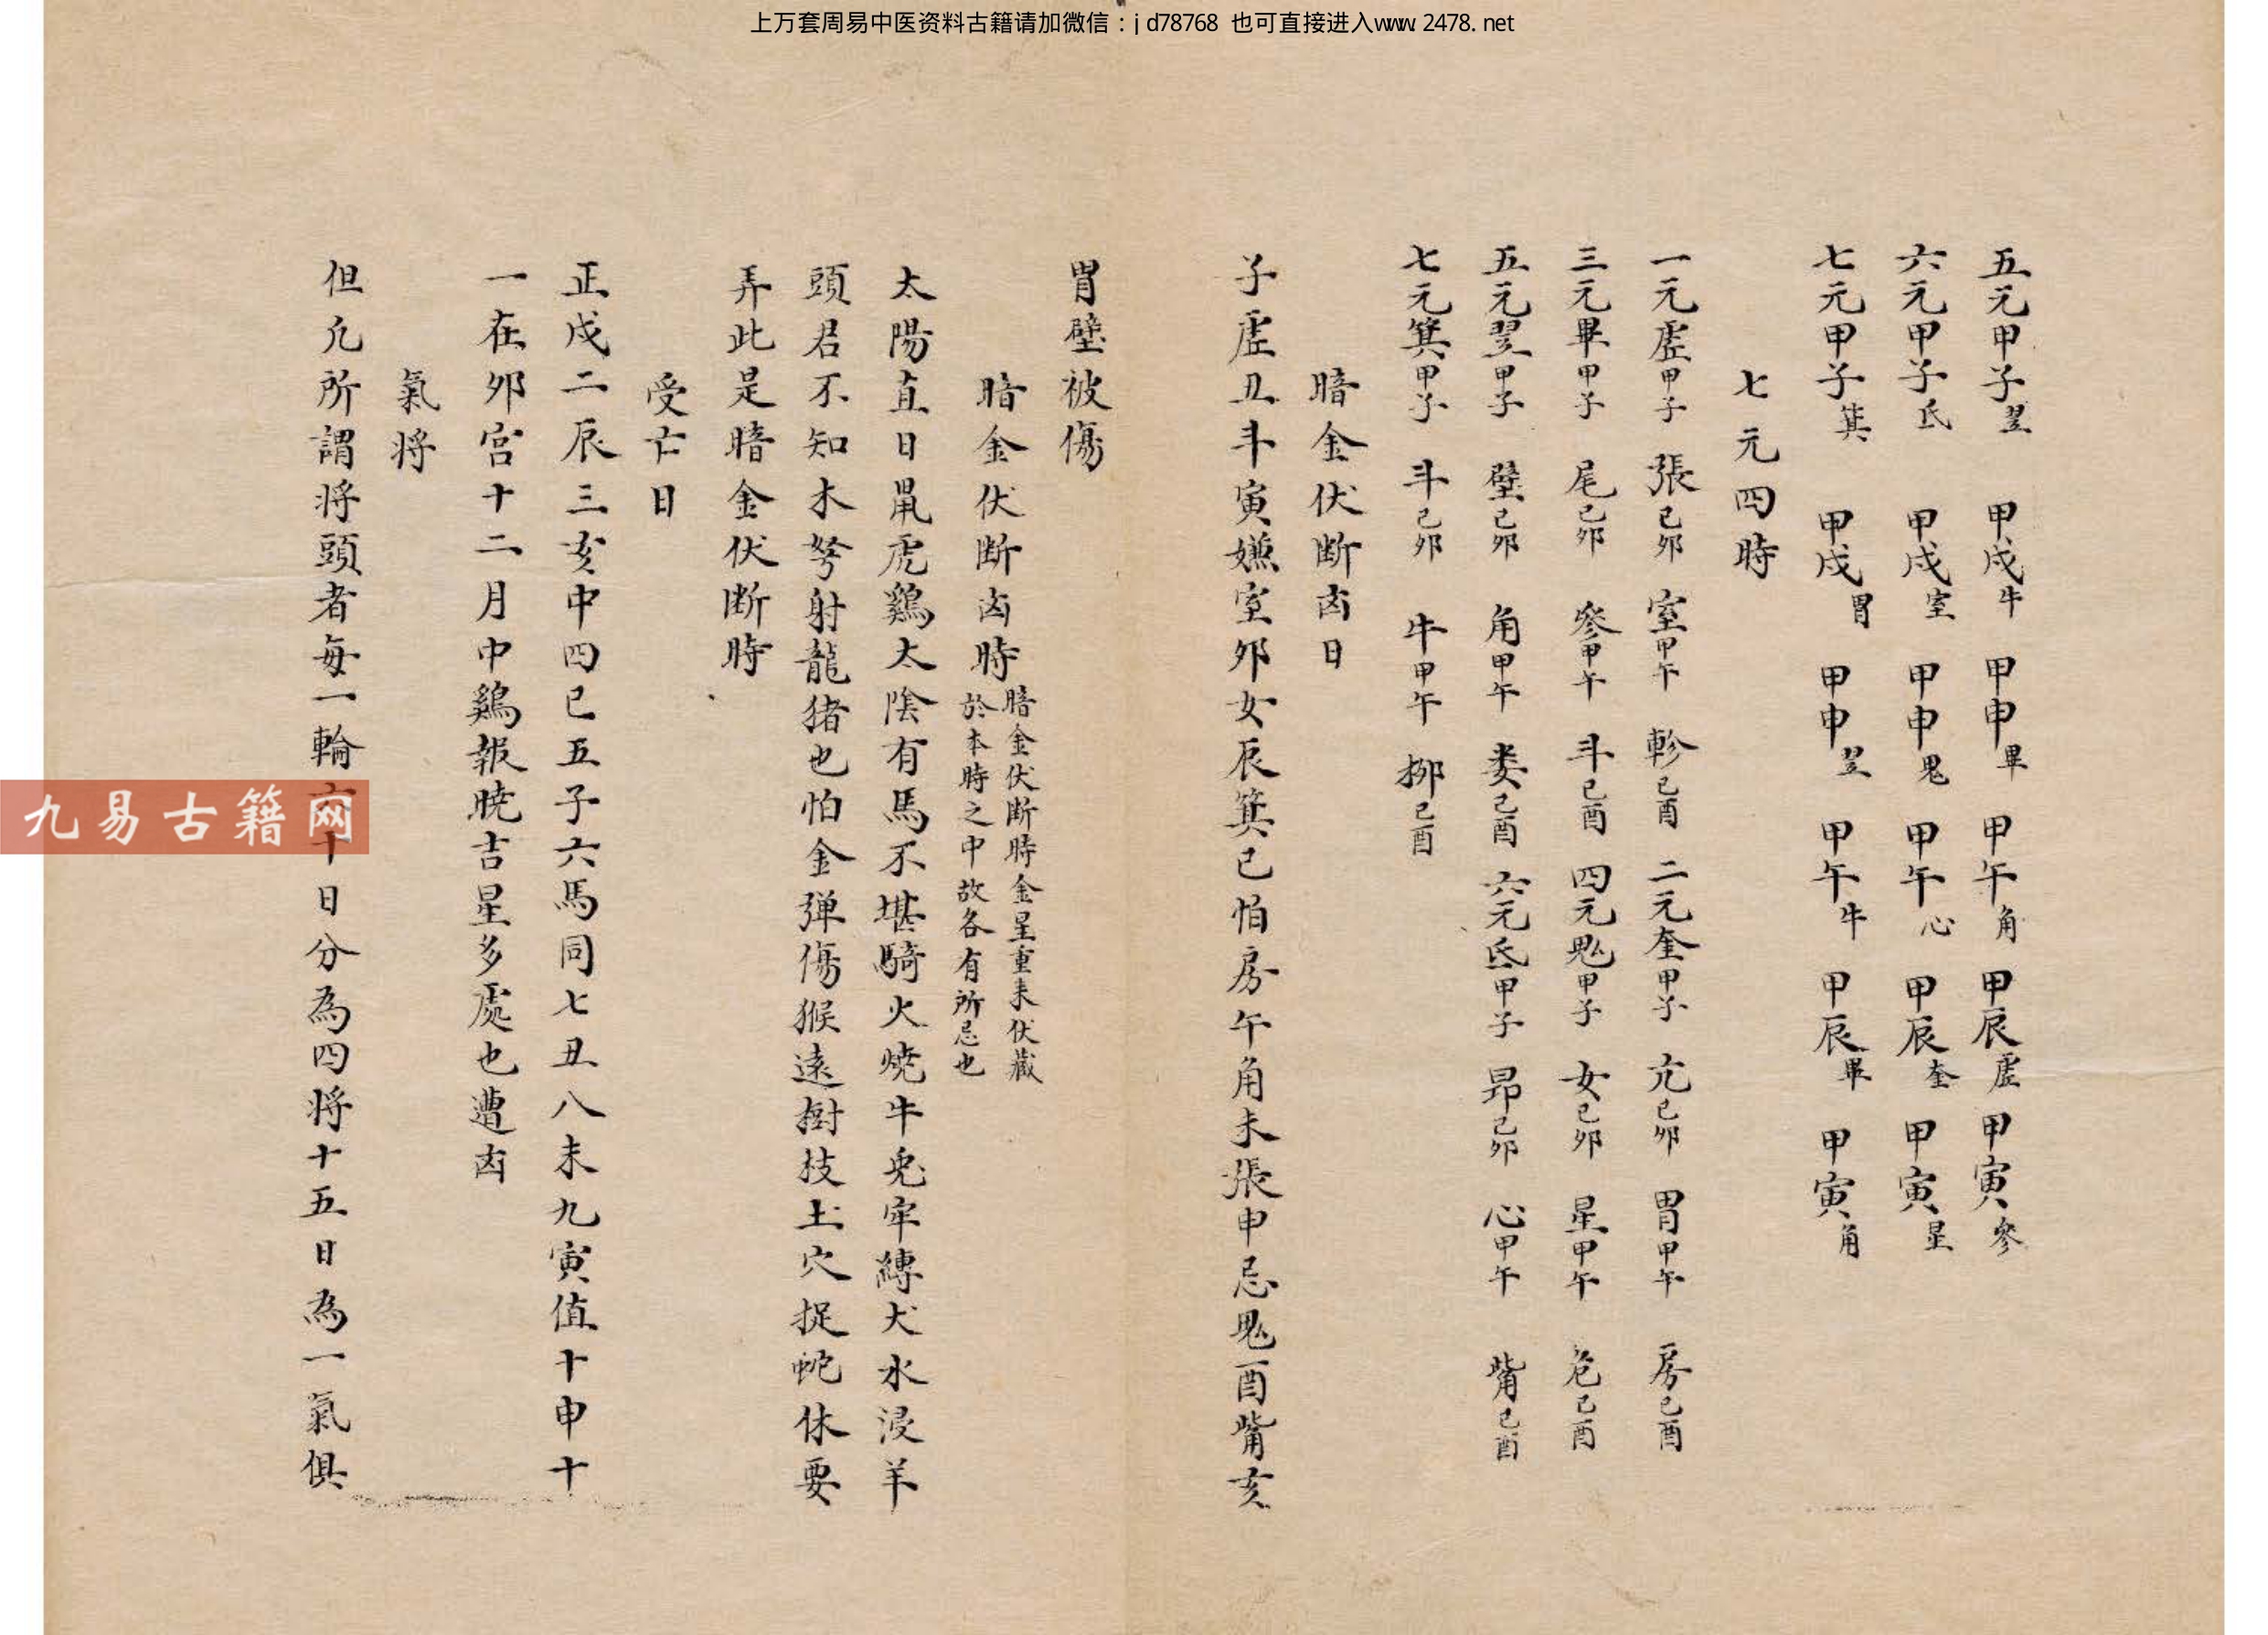 上万套周易中医资料古籍请加微信：jd78768 也可直接进入www.2478.net
五元甲子翌 甲戌牛 甲申畢 甲午角 甲辰虛 甲寅參
六元甲子氐 甲戌室 甲申鬼 甲午心 甲辰奎 甲寅星
七元甲子箕 甲戌胃 甲申翌 甲午牛 甲辰畢 甲寅角
七元四時
一元虛甲子 張己卯 室甲午 軫己酉 二元奎甲子 亢己卯 胃甲午 房己酉
三元畢甲子 尾己卯 參甲午 斗己酉 四元鬼甲子 女己卯 星甲午 危己酉
五元翌甲子 壁己卯 角甲午 婁己酉 六元氐甲子 昴己卯 心甲午 觜己酉
七元箕甲子 斗己卯 牛甲午 柳己酉
暗金伏断凶日
子虛丑斗寅嫌室卯女辰箕巳怕房午角未張申忌鬼酉觜亥
胃壁被傷
暗金伏断凶時
暗金伏断時金星重耒伏藏
於本時之中故各有所忌也
太陽直日鼠虎鷄太陰有馬不堪騎火燒牛兎牢縛犬水浸羊
頭君不知木弩射龍猪也怕金弹傷猴遠樹枝土穴捉蛇休要
弄此是暗金伏断時
受亡日
正戌二辰三亥中四巳五子六馬同七丑八未九寅值十申十
一在卯宫十二月中鷄報曉吉星多處也遭凶
氣将
但凢所謂将頭者每一輪六十日分為四将十五日為一氣俱
九易古籍网